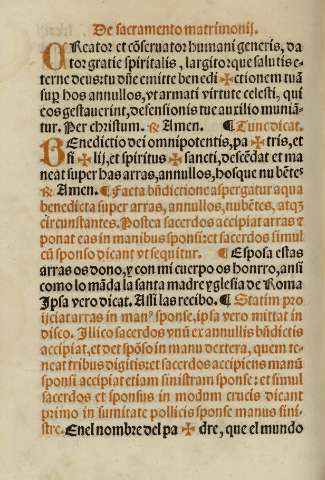 De sacramento matrimonij.
CReator et cōseruator humani generis, da
tor gratie spiritalis, largitor que salutis e-
terne deus: tu dñe emitte benedi ✠ ctionem tuā
suꝑ hos annullos, vt armati virtute celesti, qui
eos gestauerint, defensionis tue auxilio muniā-
tur. Per christum. ℟ Amen. ¶ Tunc dicat.
BEnedictio dei omnipotentis, pa ✠ tris, et
fi ✠ lij, et spiritus ✠ sancti, descēdat et ma
neat super has arras, annullos, hosque nubētes
℟ Amen. ¶ Facta bñdictione aspergatur aqua
benedicta super arras, annullos, nubētes, atqꝫ
circunstantes. Postea sacerdos accipiat arras ⁊
ponat eas in manibus sponsi: et sacerdos simul
cū sponso dicant vt sequitur. ¶ Esposa estas
arras os dono, y con mi cuerpo os honrro, ansi
como lo māda la santa madre yglesia de Roma
Ipsa vero dicat. Assi las recibo. ¶ Statim pro
ijciat arras in manꝰ sponse, ipsa vero mittat in
disco. Illico sacerdos vnū ex annullis bñdictis
accipiat, et det spōso in manu dextera, quem te-
neat tribus digitis: et sacerdos accipiens manū
sponsi accipiat etiam sinistram sponse: et simul
sacerdos et sponsus in modum crucis dicant
primo in sumitate pollicis sponse manus sini-
stre. Enel nombre del pa ✠ dre, que el mundo